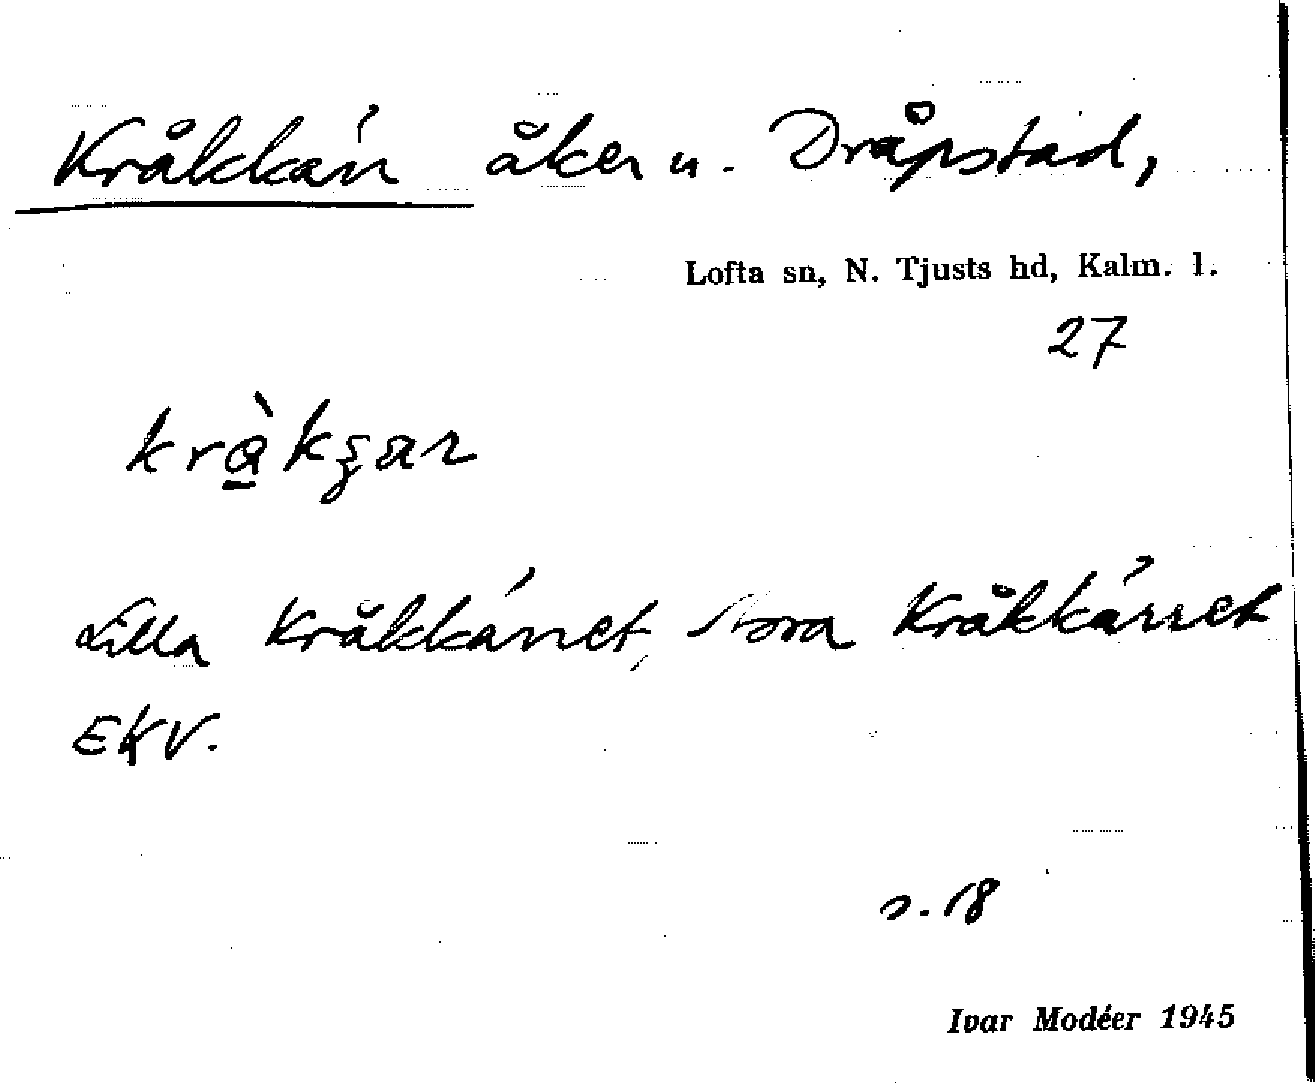 Kråkkán åker u. Dråpstad,
Lofta sn, N. Tjusts hd, Kalm. l.
27
Lilla Kråkkárret, Stora Kråkkárret
EKV.
s. 18
Ivar Modéer 1945